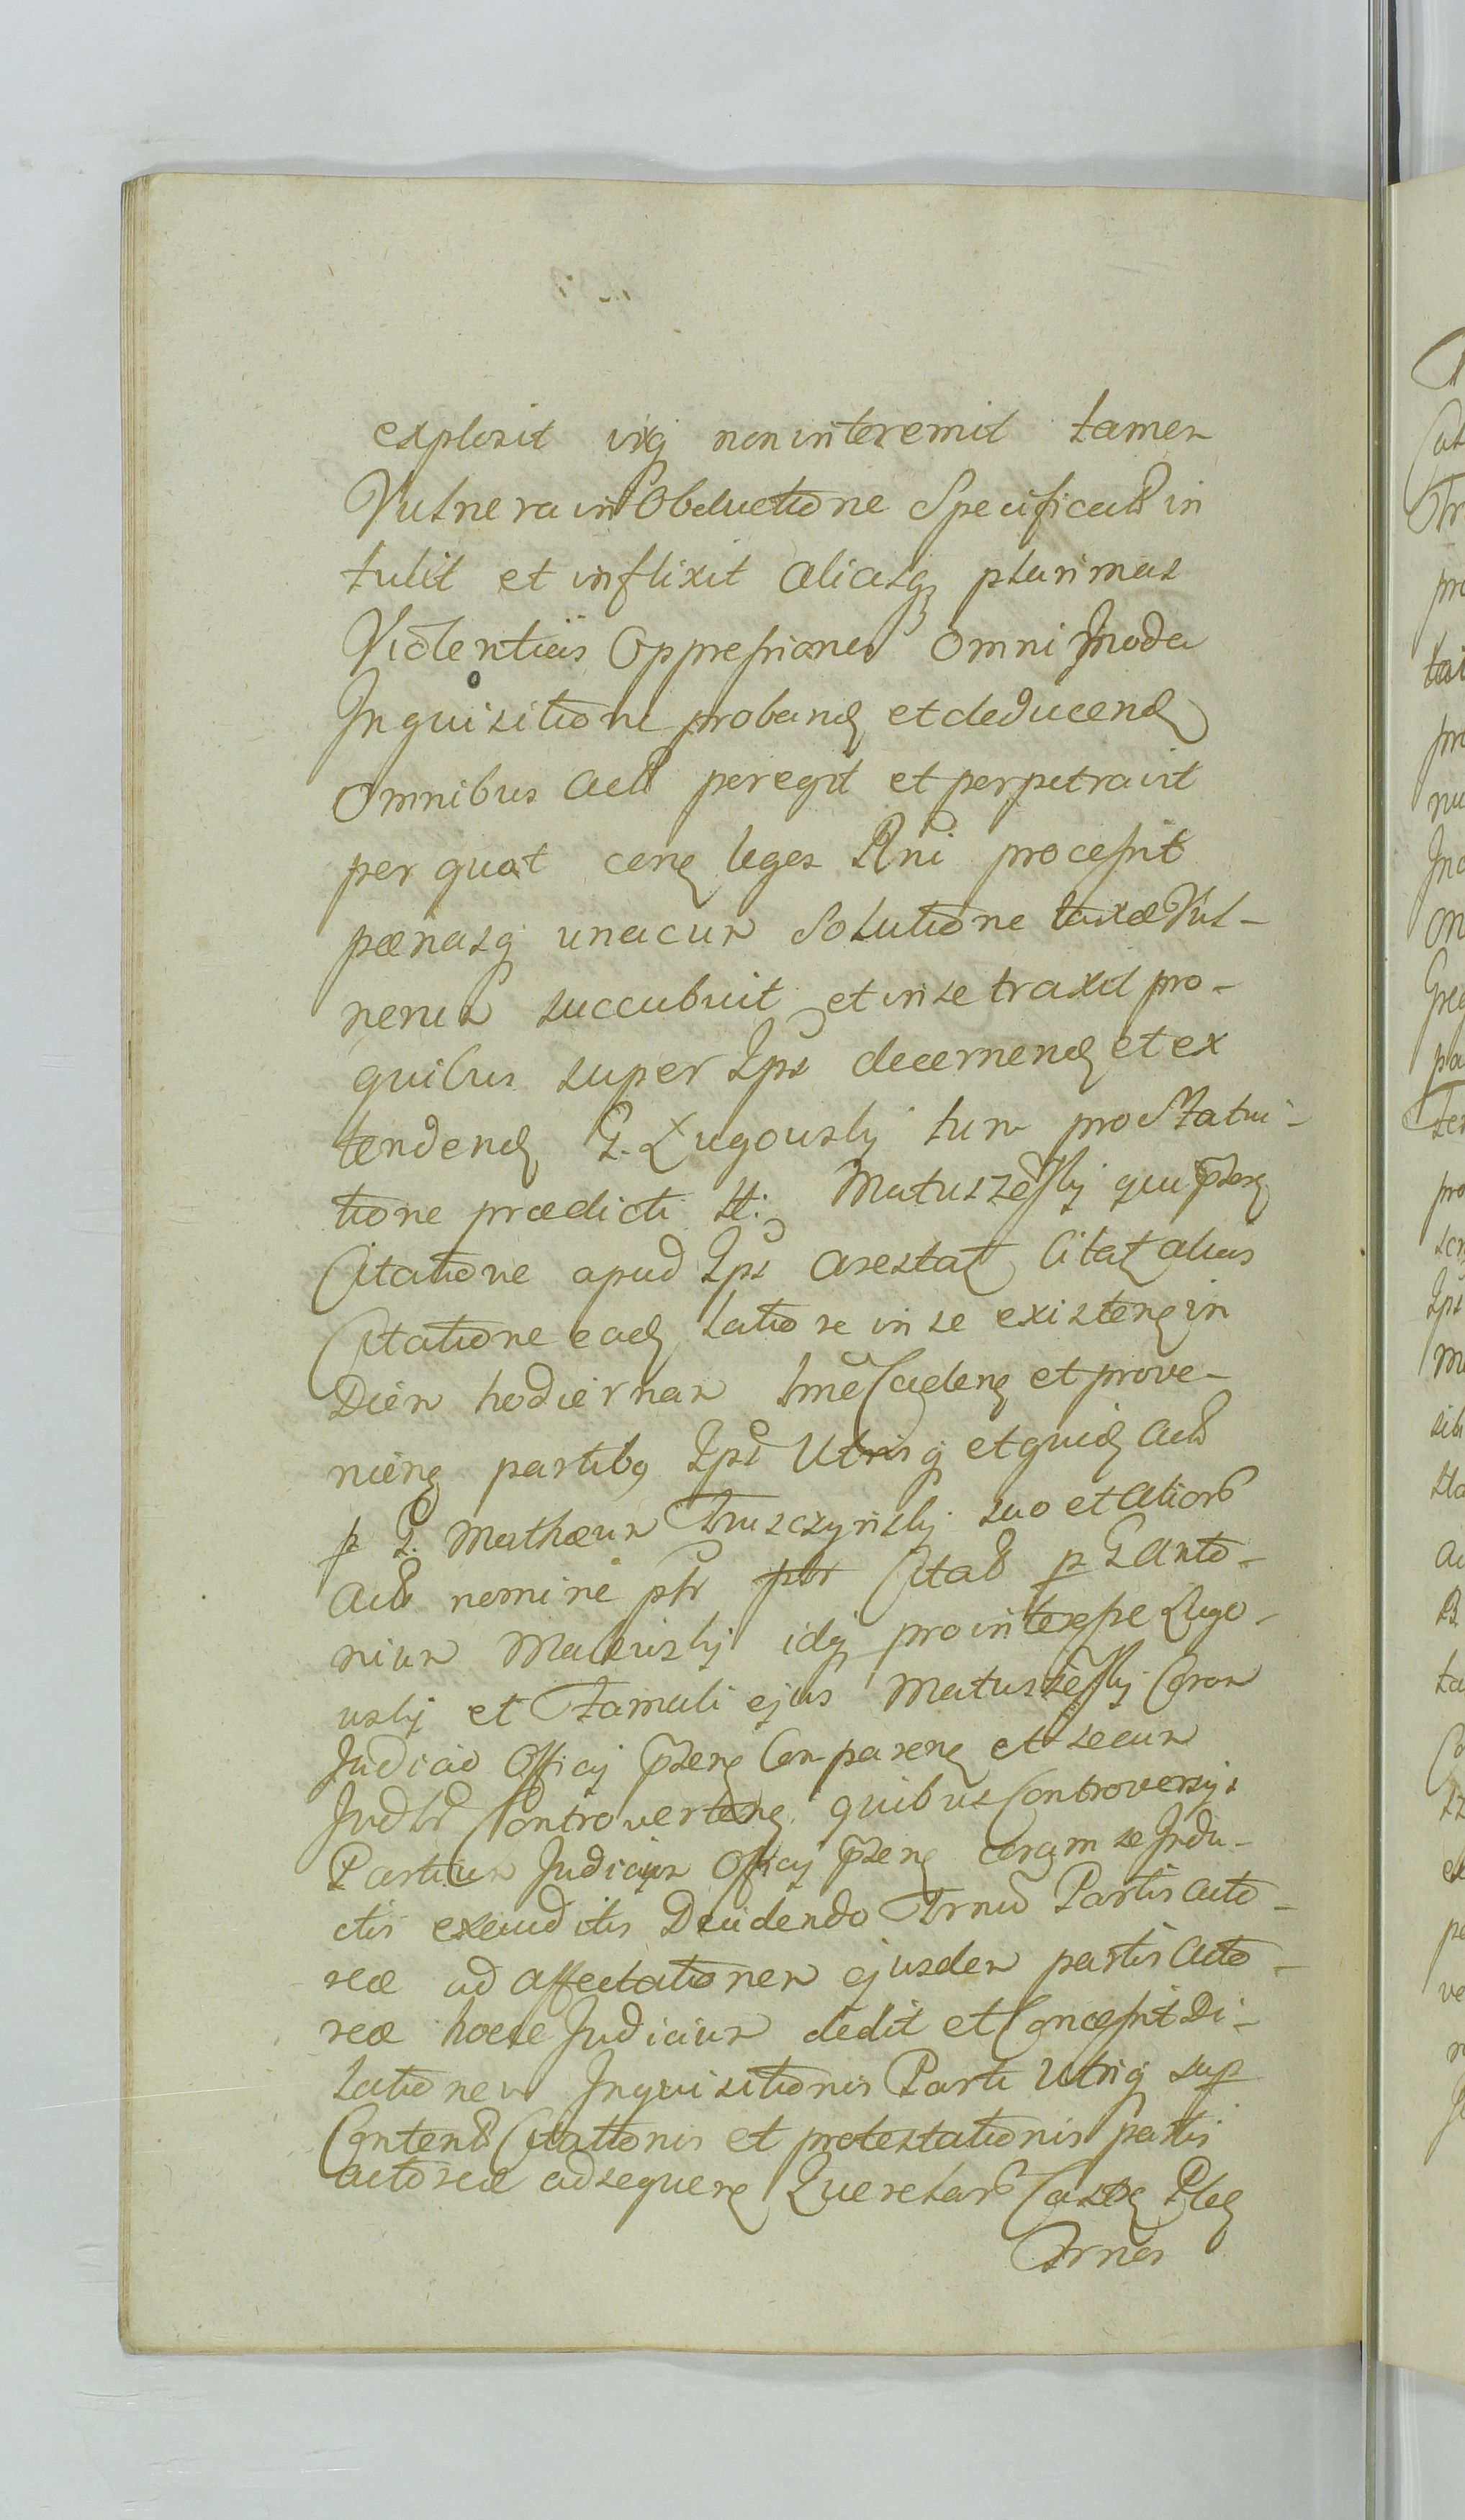 explosit vixq non interemit tamen
Vulnera in Obductione Specificata in
tulit et inflixit aliasq plurimas
Violentiis Oppressiones omnimoda
Inquisitione proband et deducend
omnibus act peregit et perpetravit
per quat leges Rni processit
pænasq unacum Solutione taxæ Vul-
nerum succubuit et in se traxit pro-
quibus super Ips decernend et ex
tendend G. Lugowskj tum pro Statui-
tione prædicti Matuszeskj qui pnseng
Citatione apud Ips arestat Citat alias
Citatione ead latiore in se existeng in
Diem hodiernam tme Cadeng et prove-
nieng partibq Ips Utrisq et quid act
p G. Mathæum Truszczynskj suo et alior
act nomine ptr ptr Citat p G Anto-
nium Malewskj idq pro interesse Lugo-
wskj et Famuli ejus Matuszeskj Coram
Judicio Officij pnseng Compareng et secum
Judtr Controverteng quibus Controversijs
Partium Judicium Officij pnseng coram se Indu-
ctis exauditis Decidendo Trnum Partis acto-
reæ ad affectationem ejusdem partis acto-
reæ hocce Judicium dedit et Concessit Di-
lationem Inquisitionis Parti Utriq sup
Content Citationis et protestationis partis
actoreæ adsequeng Querelar Castr Pleg
Trnos